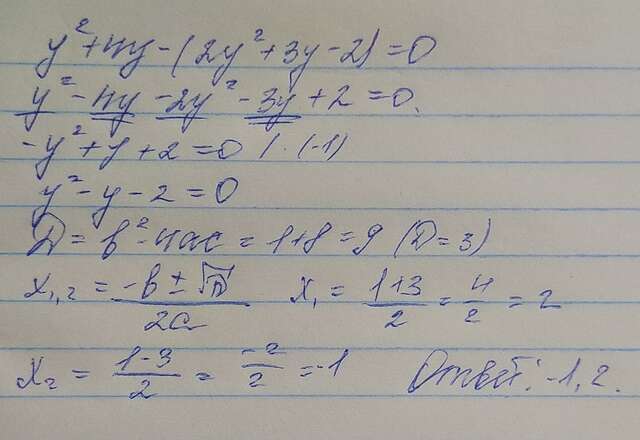 y² + 4y - (2y² + 3y - 2) = 0
y² - 4y - 2y² - 3y + 2 = 0.
-y² + y + 2 = 0 | · (-1)
y² - y - 2 = 0
D = b² - 4ac = 1 + 8 = 9 (D = 3)
x₁,₂ = (-b ± √D)/2a x₁ = (1+3)/2 = 4/2 = 2
x₂ = (1-3)/2 = -2/2 = -1 Ответ: -1, 2.